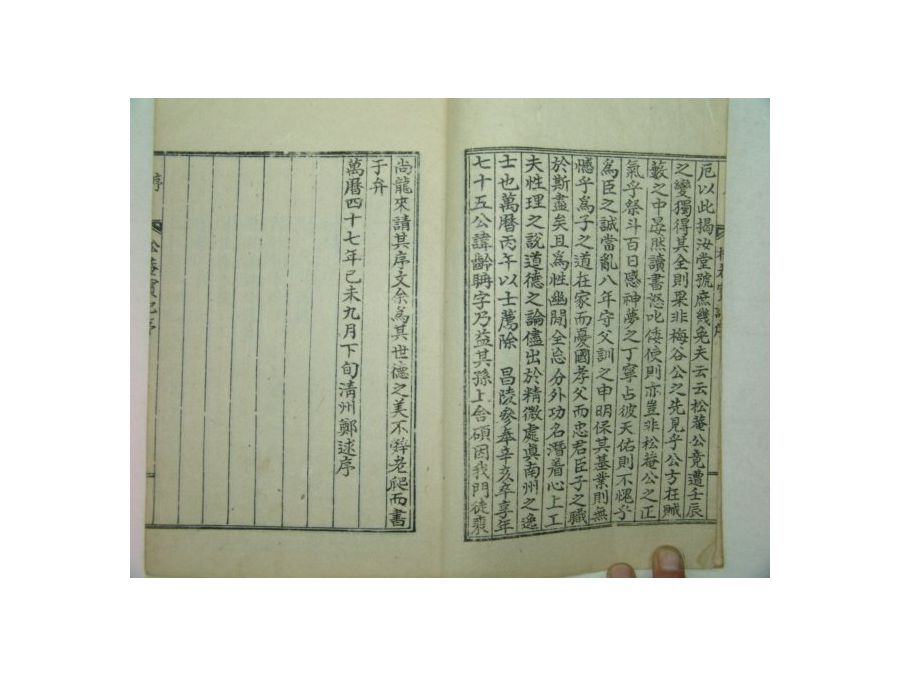 厄以此揭汝堂號庶幾免夫云云松菴公竟遭壬辰
之變獨得其全則果非梅谷公之先見乎公方在賊
藪之中晏然讀書怒叱倭使則亦豈非松菴公之正
氣乎祭斗百日感神夢之丁寧占彼天佑則不愧乎
爲臣之誠當亂八年守父訓之申明保其基業則無
憾乎爲子之道在家而憂國孝父而忠君臣子之職
於斯盡矣且爲性幽閒全忘分外功名潛着心上工
夫性理之說道德之論儘出於精微處眞南州之逸
士也萬曆丙午以士薦除 昌陵參奉辛亥卒享年
七十五公諱齡聃字乃益其孫上舍碩因我門徒裵
尙龍來請其序文余爲其世德之美不辭老爬而書
于弁
萬曆四十七年己未九月下旬淸州鄭逑序
序